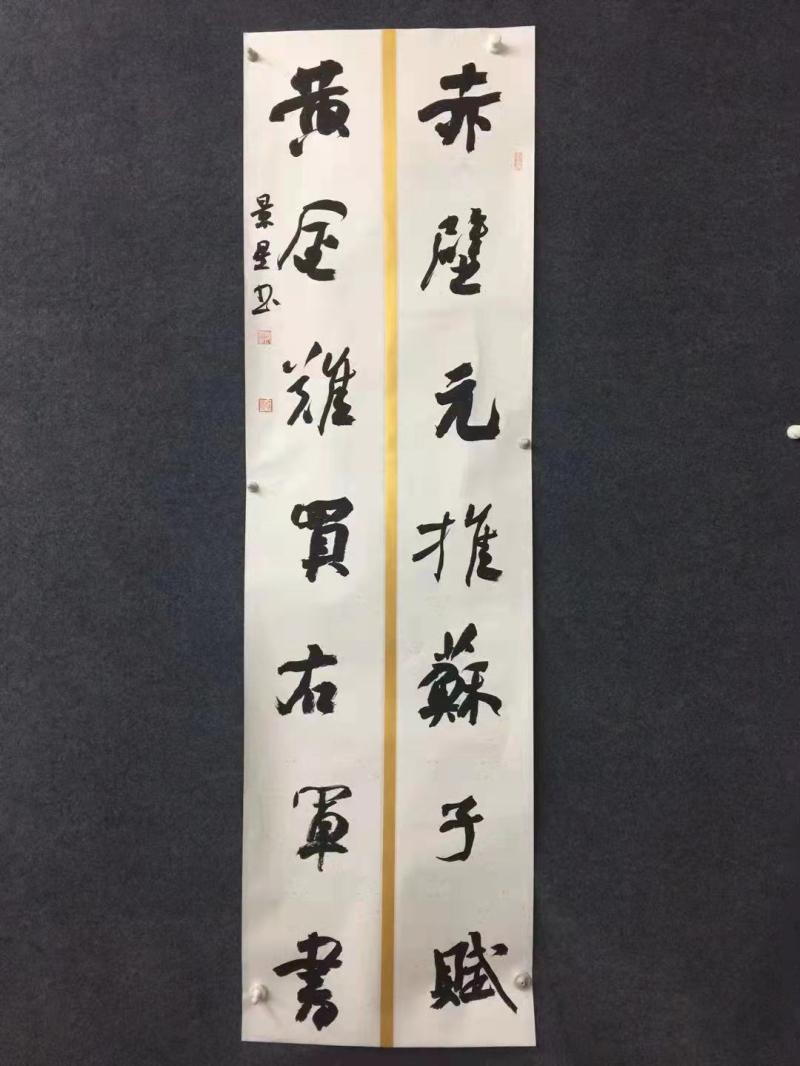 赤壁元推蘇子賦
黄金難買右軍書
景星书